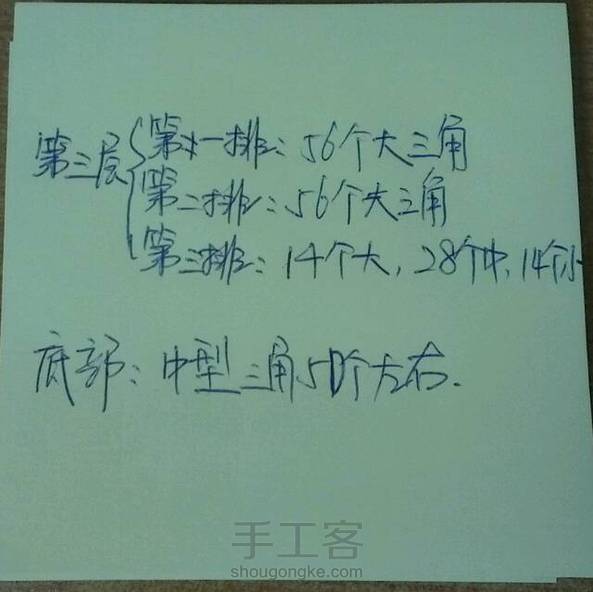 第三层
第一排：56个大三角
第二排：56个大三角
第三排：14个大，28个中，14个小
底部：中型三角50个左右.
手工客
shougongke.com